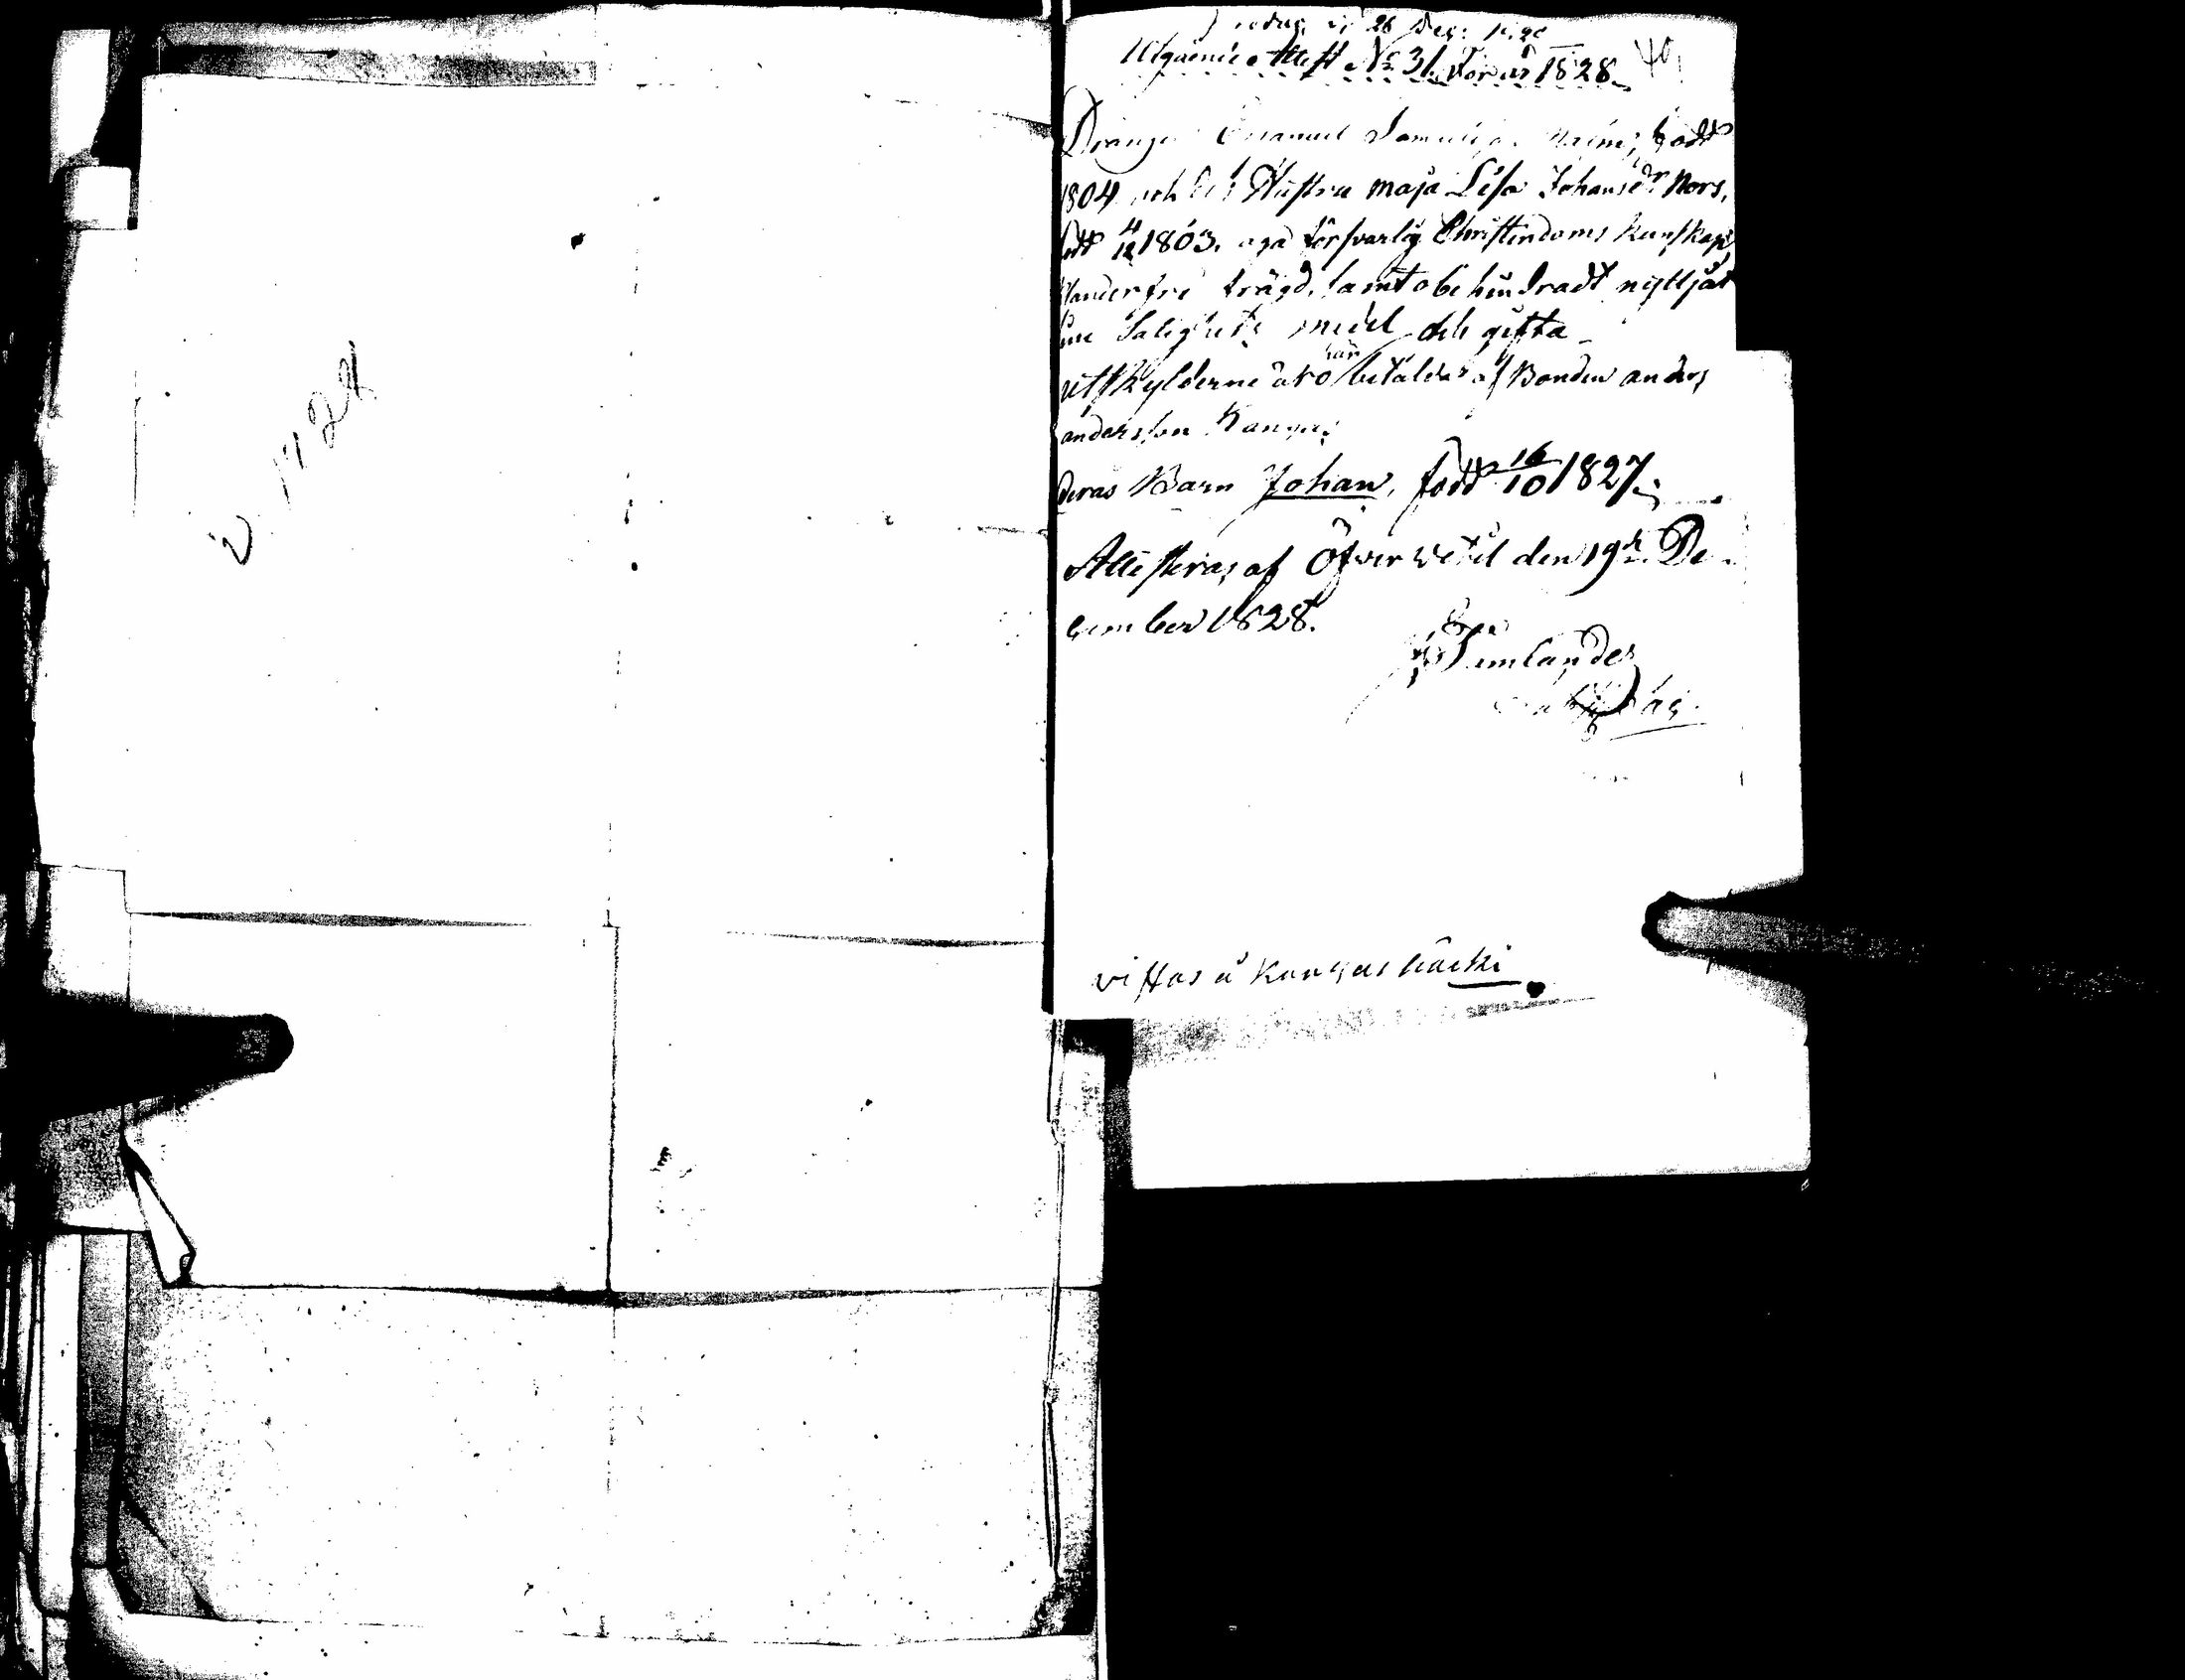 26 Dec:
Utgående Attest No 31 för år 1828.
Drängen Emanuel född
1804 och hustru Maja Lisa Johansdr Nors,
född 4/12 1803. äga försvarlig Christendoms kunskap,
klanderfri frägd, samt obehindradt nyttjat
sine Salighets medel och gifta
utskylderne åro betaldes af Bonden anders
andersson Kangas
deras Barn Johan, född 16/10 1827
Attesteras af Öfver Vetil den 19de De-
cember 1828.
vistas å Kangas backi